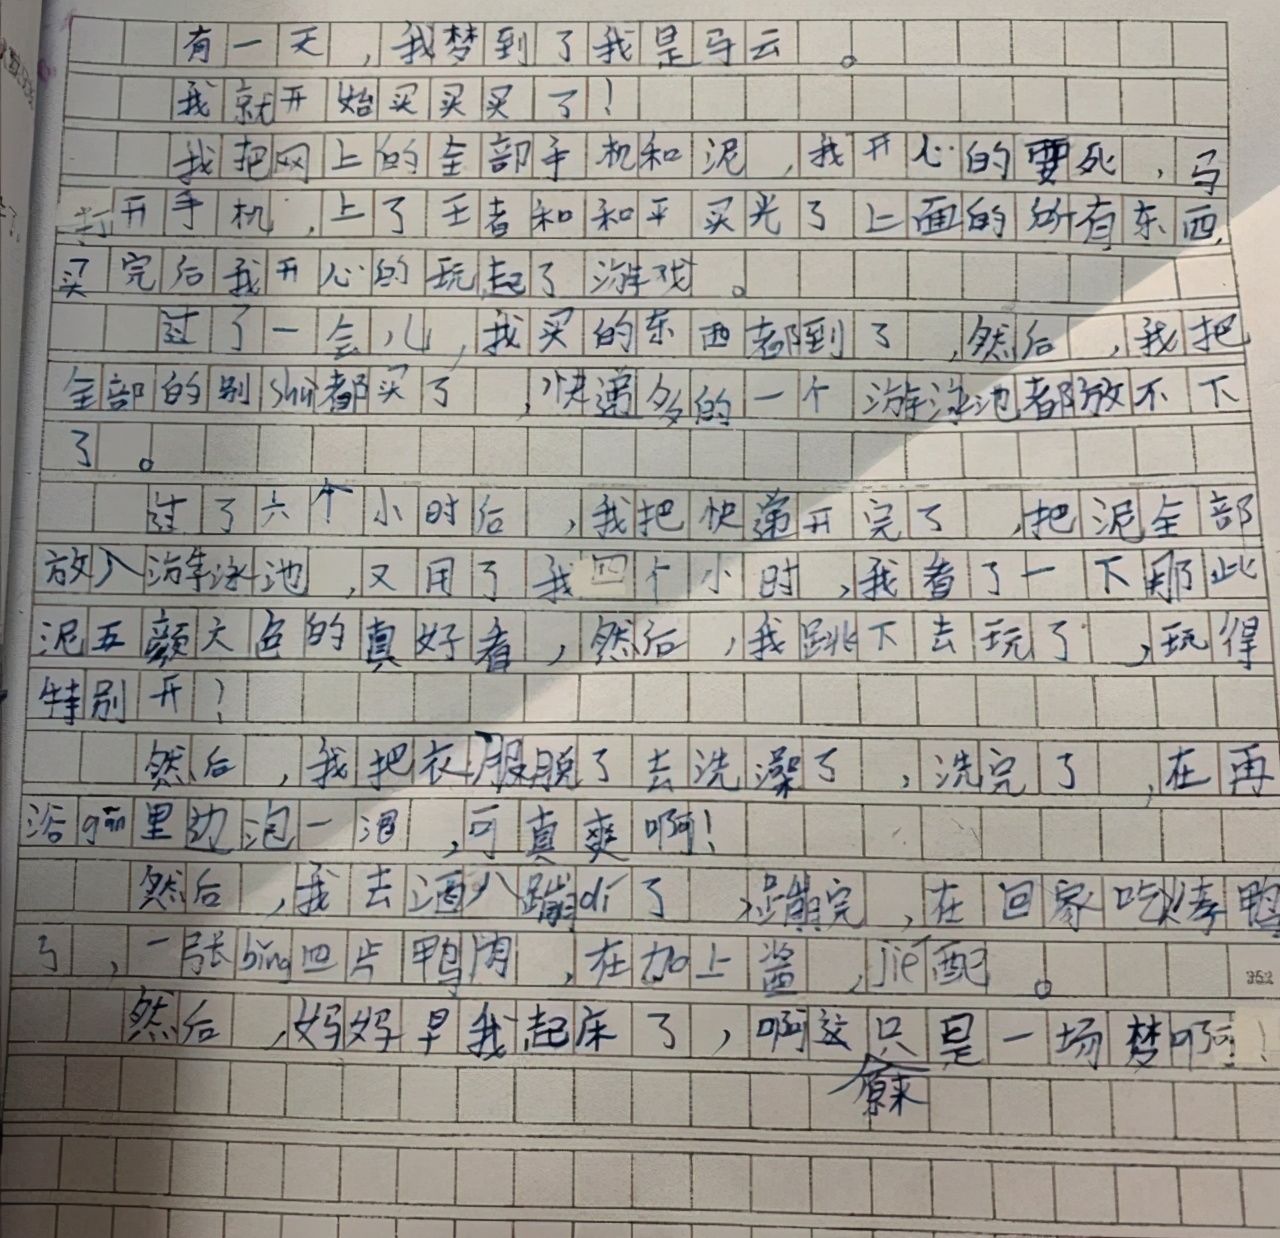 有一天,我梦到了我是马云。
我就开始买买买了!
我把网上的全部手机和泥,我开心的要死,马
打开手机,上了王者和和平买光了上面的所有东西,
买完后我开心的玩起了游戏。
过了一会儿,我买的东西都到了,然后,我把
全部的别shu都买了,快递多的一个游泳池都放不下
了。
过了六个小时后,我把快递开完了,把泥全部
放入游泳池,又用了我四个小时,我看了一下那此
泥五颜大色的真好看,然后,我跳下去玩了,玩得
特别开!
然后,我把衣服脱了去洗澡了,洗完了,在再
浴gan里边泡一泡,可真爽啊!
然后,我去酒八蹦di了,蹦完,在回家吃烤鸭
了,一张bing四片鸭肉,在加上酱,jie配。
然后,妈妈早我起床了,啊这只是一场梦啊!
原来
352